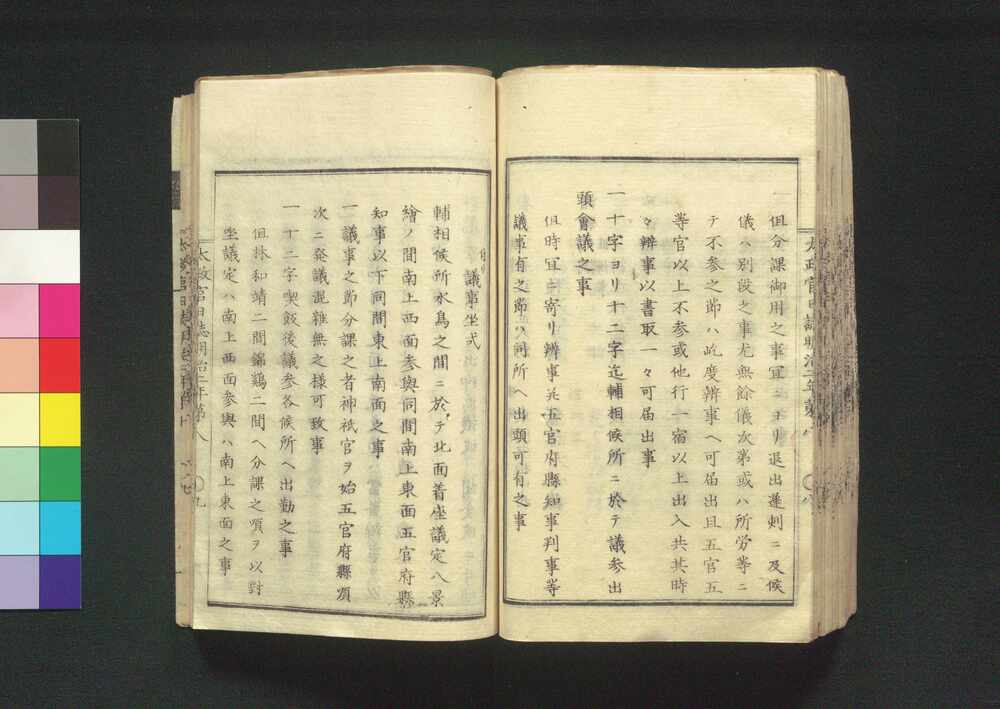 但分課御用之事宜ニヨリ退出遅刻ニ及候
儀ハ別段之事尤無餘儀次第或ハ所労等ニ
テ不参之節ハ屹度辨事ヘ可届出且五官五
等官以上不参或他行一宿以上出入共其時
々辨事以書取一々可届出事
一十字ヨリ十二字迄輔相候所ニ於テ議参出
頭會議之事
但時宜ニ寄リ辨事并五官府縣知事判事等
議事有之節ハ同所ヘ出頭可有之事
議事坐式
輔相候所水鳥之間ニ於テ北面着座議定八景
繪ノ間南上西面参與同間南上東面五官府縣
知事以下同間東上南面之事
一議事之節分課之者神祇官ヲ始五官府縣順
次ニ発議混雑無之様可致事
一十二字喫飯後議参各候所ヘ出勤之事
但林和靖二間錦鶏二間ヘ分課之順ヲ以對
坐議定ハ南上西面参與ハ南上東面之事
太政官日誌明治二年第八
九